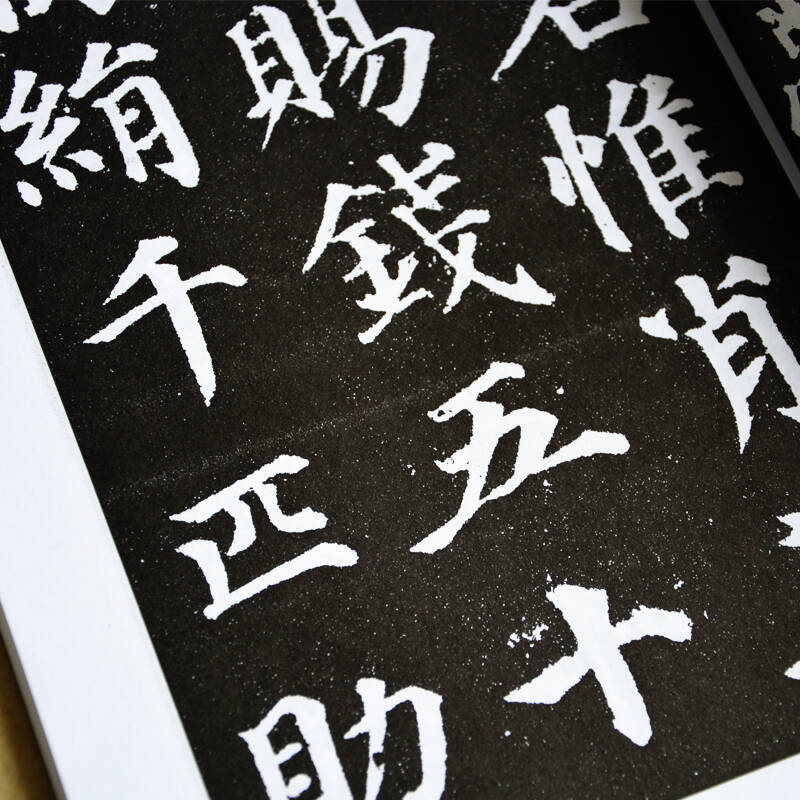 惟肖
賜錢五十
絹千匹助